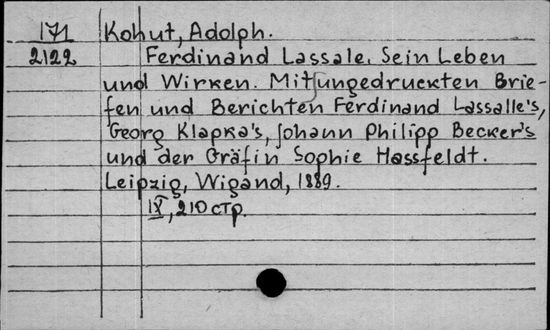 171 Kohut, Adolph.
2122 Ferdinand Lassale. Sein Leben
und Wirken. Mit ungedruckten Brie-
fen und Berichten Ferdinand Lassalle's,
Georg Klapka's, Johann Philipp Becker's
und der Gräfin Sophie Hassfeldt.
Leipzig, Wigand, 1889.
IX, 210 стр.